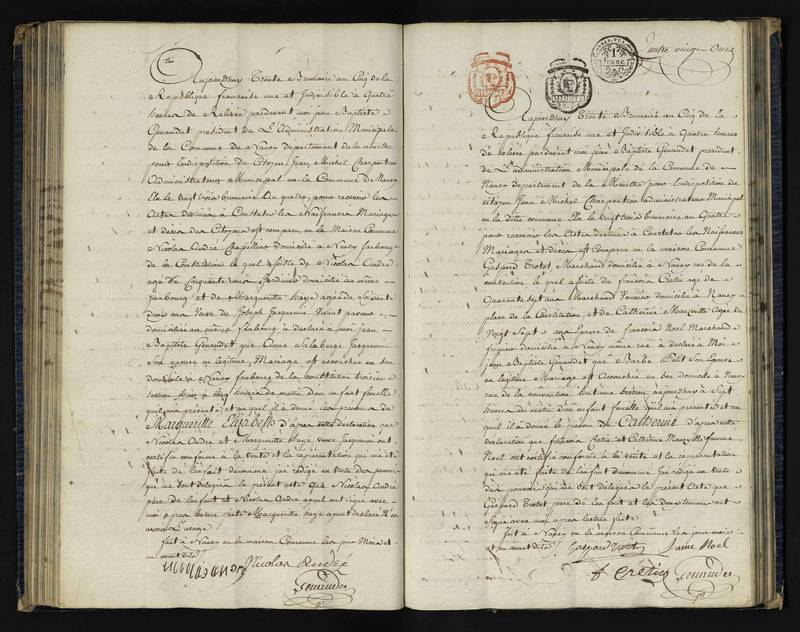 Aujourdhuy Trente Brumaire an Cinq de la
Republique francaise une et Indivisible à quatre
heures de Relevée pardevant moi jean Baptiste
president de L'Administration Municipale
de la Commune de Nancy departement de la Meurthe
pour Lindisposition du Citoyen Jean Michel Charpentier
Administrateur Municipal en la Commune de Nancy
Elu le vingt trois brumaire an quatre, pour recevoir les
Actes destinés à Constater les Naissances Mariages
et décès des Citoyens est comparu en la Maison Commune
Nicolas André Chapellier domicilié à Nancy faubourg
de la Constitution lequel assisté de Nicolas André
agé de Cinquante ans Jardinier domicilié au même
faubourg et de Margueritte haye agée de Soixante
deux ans Veuve de Joseph Jacquemin
domiciliée au même faubourg à déclaré à moi jean
Baptiste que Anne Jacquemin
Son epouse en légitime Mariage est accouchée en son
domicile à Nancy faubourg de la constitution troisieme
Section hier à cinq heures du matin d'un enfant femelle
quel m'a présenté et auquel il a donné les prénoms de
Margueritte Elizabeth d'apres cette déclaration que
Nicolas André et Margueritte haye veuve Jacquemin ont
certifié conforme à la vérité et la représentation qui m'a été
faite de lenfant denommé, jai rédigé en vertu des pouvoirs
qui me sont délégués le présent acte que Nicolas André
père de lenfant et Nicolas André ayeul ont signé avec
moi après lecture faite Margueritte haye ayant déclaré n'en
avoir l'usage
fait à Nancy en la maison Commune les jour Mois et
an avant dits
Nicolas André
1 franc
quatre vingt Onze
Aujourdhuy Trente Brumaire an Cinq de la
Republique francaise une et Indivisible à quatre heures
de relevée pardevant moi jean Baptiste president
de L'administration Municipale de la Commune de
Nancy departement de la Meurthe pour Lindisposition du
citoyen Jean Michel Charpentier administrateur Municipal
en la Ditte commune Elu le vingt trois brumaire an quatre
pour recevoir les Actes destinés à Constater les Naissances
Mariages et décès est Comparu en la maison Commune
Gaspard Trotot Marchand domicilié à Nancy rue de la
convention lequel assisté de francois Cretin agé de
Quarante sept ans Marchand domicilié à Nancy
place de la Constitution, et de Catherine Manzville agée de
Vingt Sept ans Epouse de francois Noel Marchand
domiciliée à Nancy même rue à déclaré à Moi
jean Baptiste que Barbe Petit Son Epouse
en légitime Mariage est Accouchée en son domicile à Nancy
rue de la convention huitieme Section, aujourdhuy à Sept
heures du matin d'un enfant femelle quel m'a présenté et au
quel il a donné le prénom de Catherine d'apres cette
déclaration que francois Cretin et Catherine Manzville femme
Noel ont certifié conforme à la vérité et la représentation
qui m'a été faite de lenfant denommé jai rédigé en vertu
des pouvoirs qui me sont délégués le présent Acte que
Gaspard Trotot père de lenfant et les deux témoins ont
Signé avec moi après lecture faite
fait à Nancy en la maison Commune les jour mois
et an avant dits Gaspard Trotot femme Noel
f Cretin